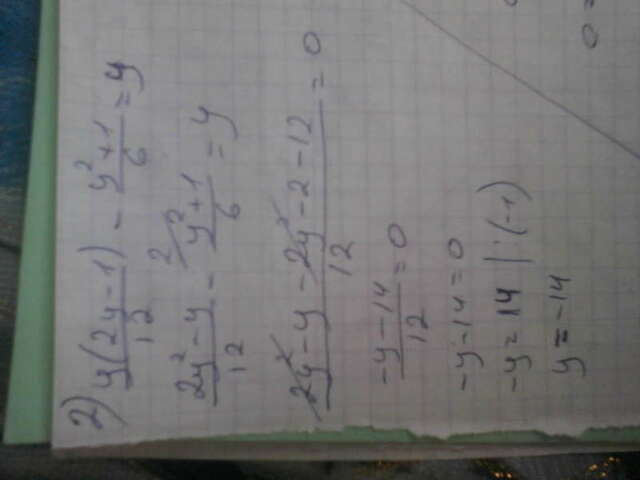 2) y(2y-1)/12 - y²+1/6 = y
2y²-y/12 - ²/y²+1/6 = y
2y²-y-2y²-2-12/12 = 0
-y-14/12 = 0
-y-14=0
-y=14 | ·(-1)
y=-14